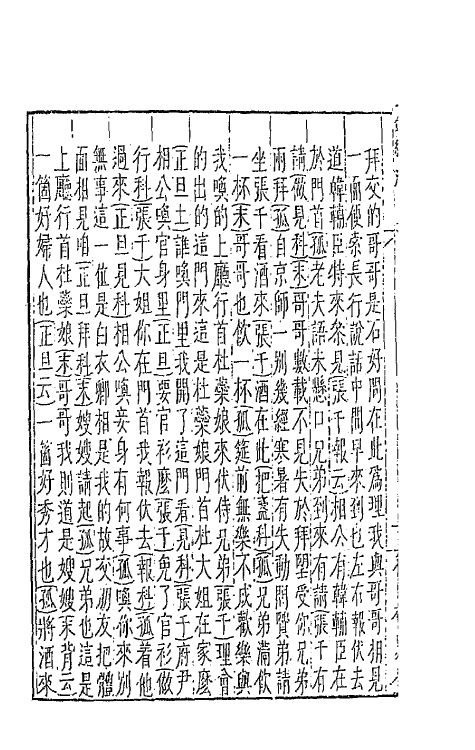 拜交的哥哥是石好問在此爲理我與哥哥相見
一面便索長行說話中間早來到也左右報伏去
道韓輔臣特來叅見張千報云相公有韓輔臣在
於門首孤老夫語未懸口兄弟到來有請張千有
請做見科末哥哥數載不見失於拜望受你兄弟
兩拜孤自京師一別幾經寒暑有失動問賢弟請
坐張千看酒來張千酒在此把盞科孤兄弟滿飲
一杯末哥哥也飲一杯孤筵前無樂不成歡樂與
我喚的上廳行首杜蘂娘來伏侍兄弟張千理會
的出的這門來這是杜蘂娘門首杜大姐在家麽
正旦上誰喚門里我開了這門看見科張千府尹
相公喚官身里正旦要官衫麽張千免了官衫做
行科張千大姐你在門首我報伏去報科孤着他
過來正旦見科相公喚妾身有何事孤喚你來別
無事這一位是白衣卿相是我的故交朋友把體
面相見咱正旦拜科末嫂嫂請起孤兄弟也這是
上廳行首杜蘂娘末哥哥我則道是嫂嫂末背云
一箇好婦人也正旦云一箇好秀才也孤將酒來